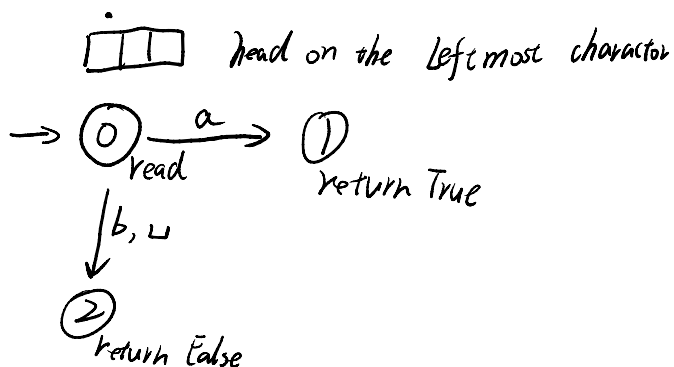 head on the leftmost charactor
0 a 1
read
return True
b, ␣
2
return False